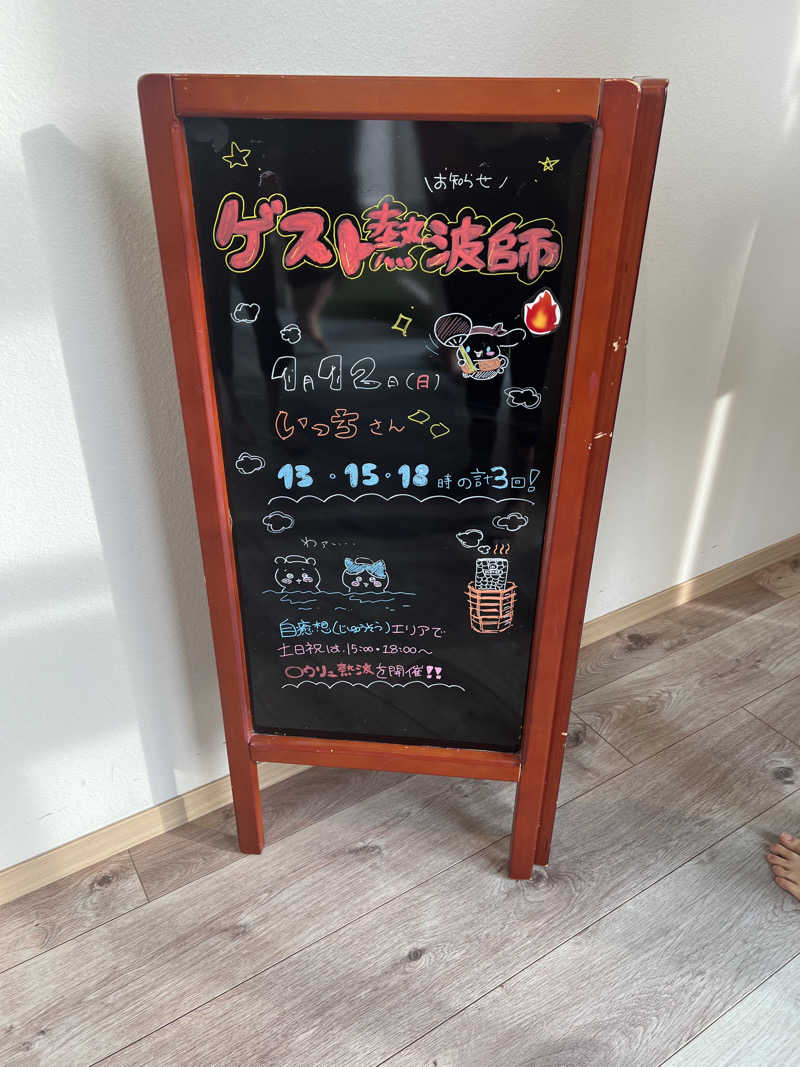 \お知らせ/
ゲスト熱波師
1月12日(日)
いっちさん
13・15・18時の計3回!
わァ....
自癒想(じゆうそう)エリアで
土日祝は、15:00・18:00〜
〇ウリュ熱波を開催!!